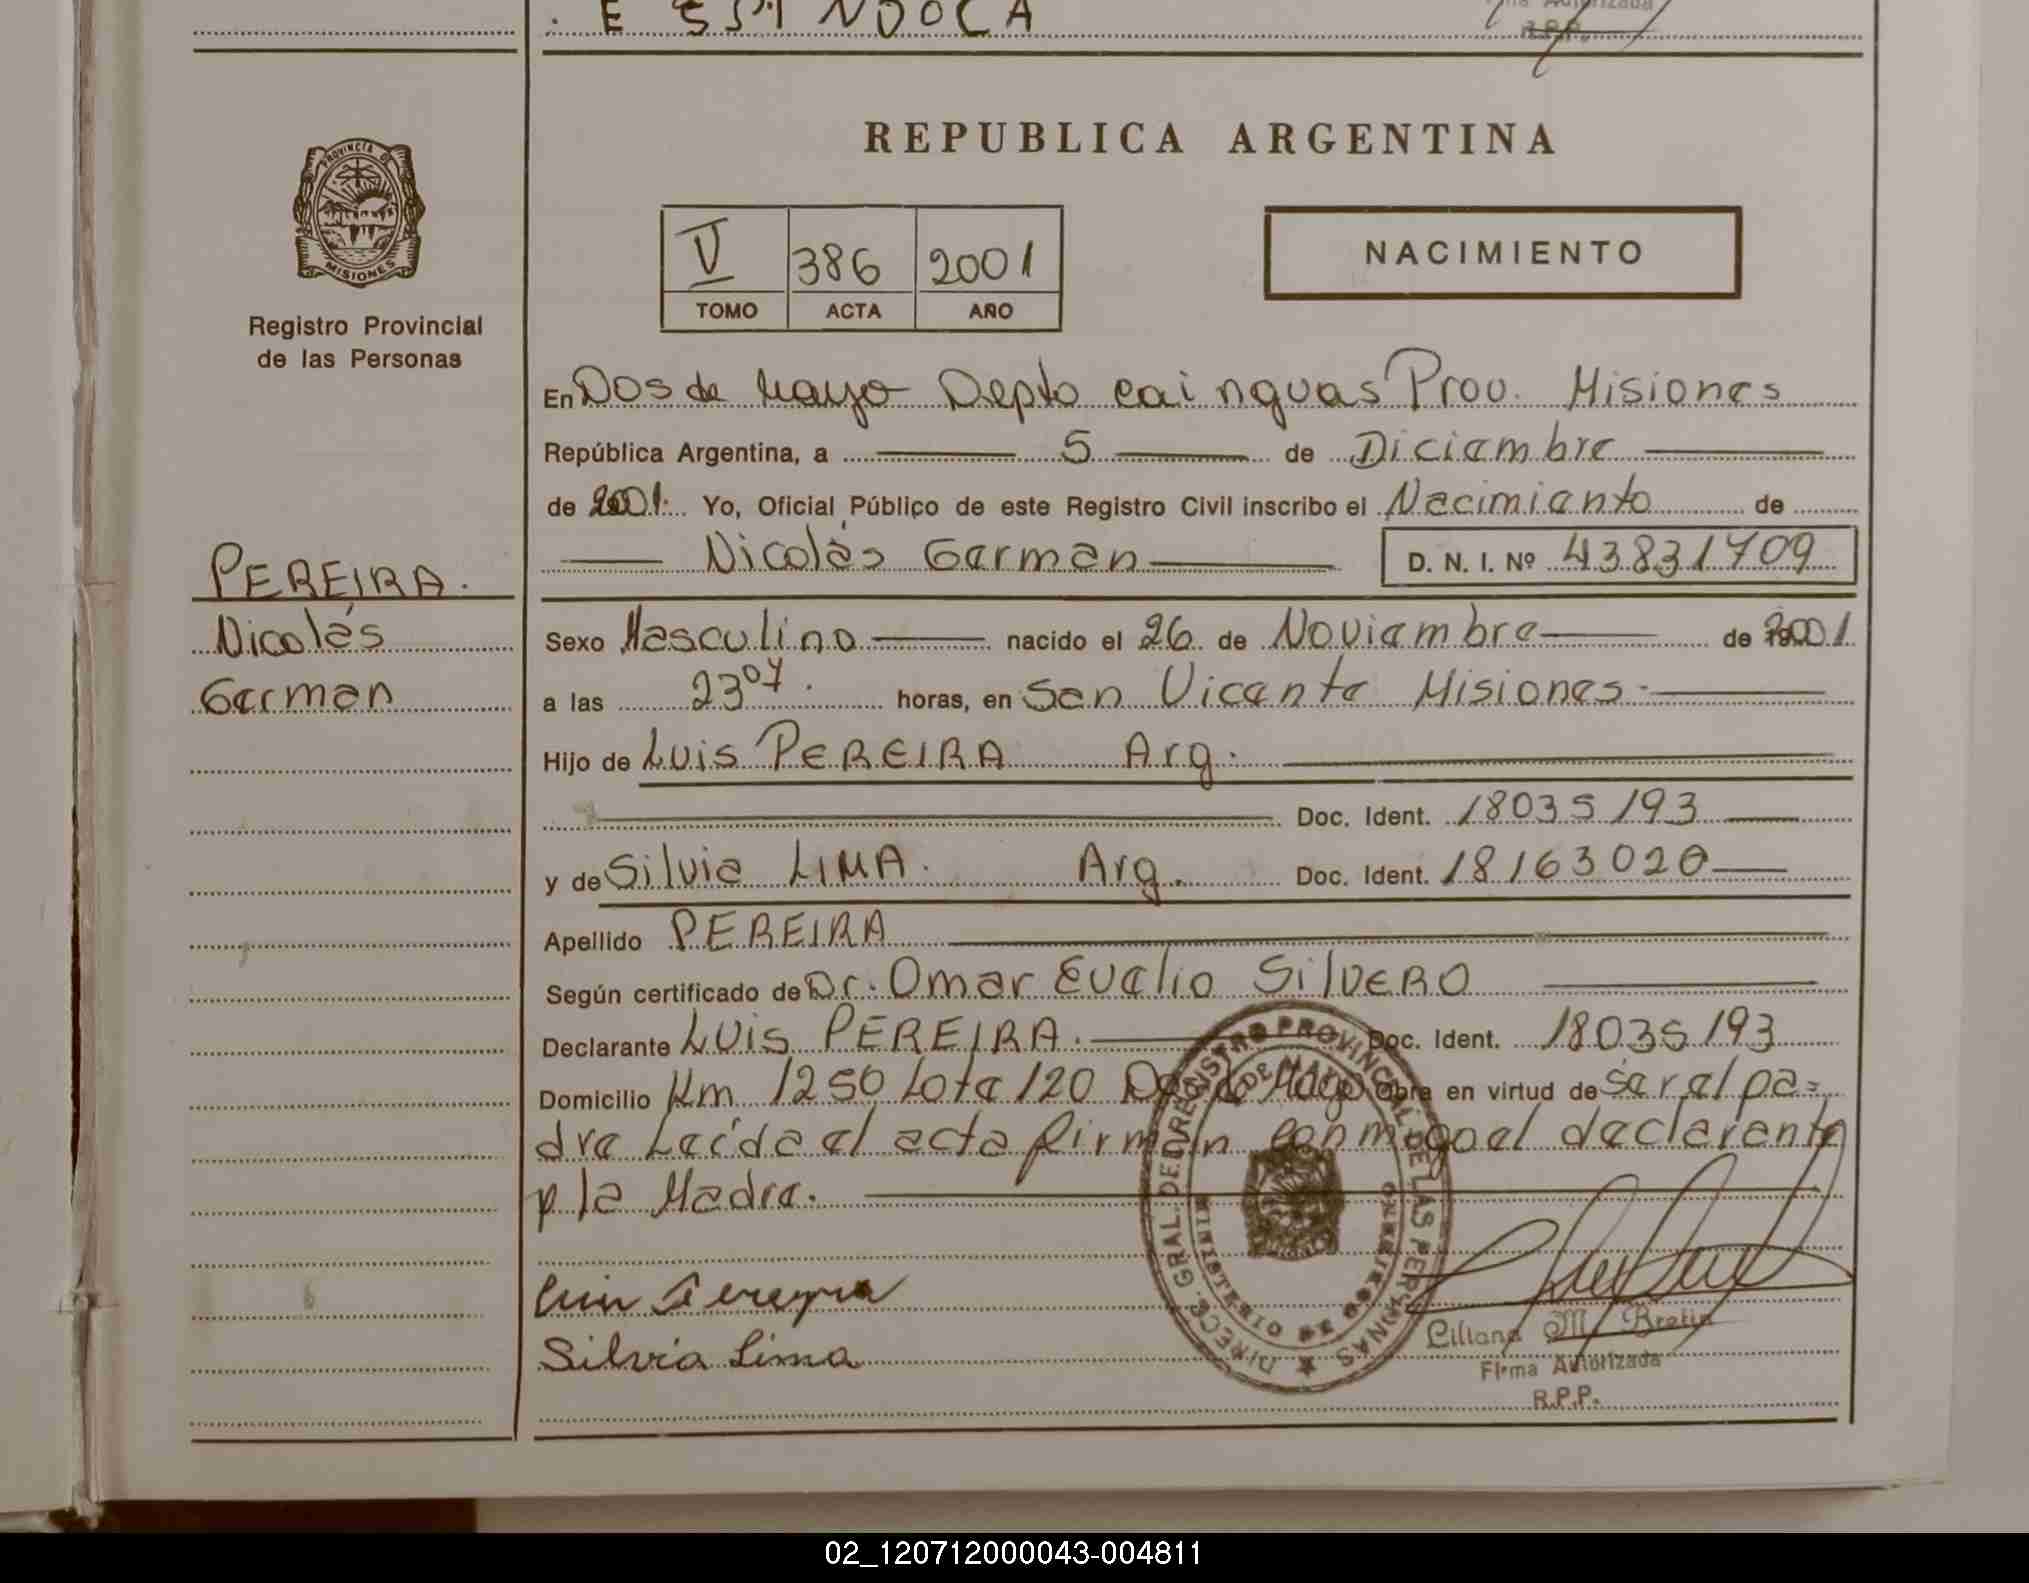 REPUBLICA ARGENTINA
PROVINCIA DE
MISIONES
Registro Provincial
de las Personas
V 386 2001
TOMO ACTA AÑO
NACIMIENTO
En Dos de Mayo Depto cainguas Prov. Misiones
República Argentina, a 5 de Diciembre
de 2001. Yo, Oficial Público de este Registro Civil inscribo el Nacimiento de
Nicolás German D. N. I. Nº 43831709
PEREIRA.
Nicolás
German
Sexo Masculino nacido el 26 de Noviembre de 2001.
a las 23 07. horas, en San Vicente Misiones.
Hijo de Luis PEREIRA Arg.
Doc. Ident. 18035193
y de Silvia LIMA. Arg. Doc. Ident. 18163020
Apellido PEREIRA
Según certificado de Dr. Omar Evelio SilVERO
Declarante LUis PEREIRA. Doc. Ident. 18035193
Domicilio Km 1250 Lote 120 Dos de Mayo Obra en virtud de ser el pa=
dre Leída el acta firman conmigo el declarante
y la Madre.
Silvia Lima
DIRECC. GRAL. DEL REGISTRO PROVINCIAL DE LAS PERSONAS
MINISTERIO DE GOBIERNO
DOS DE MAYO
Liliana M. Bretin
Firma Autorizada
R.P.P.
02_120712000043-004811